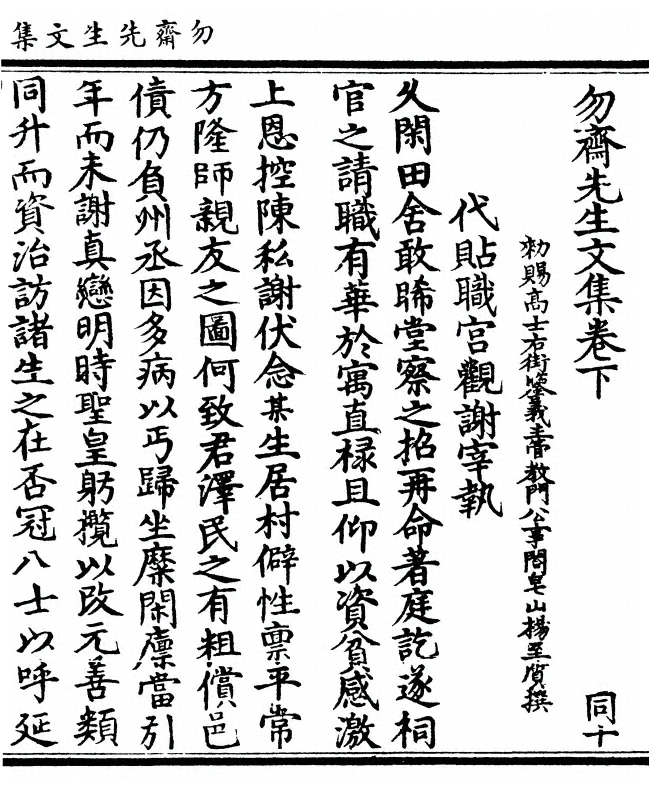 勿齋先生文集
勿齋先生文集卷下　同十
勑賜高士右街鑒義主管教門公事閤皂山楊至質撰
代貼職宮觀謝宰執
久閑田舍敢睎堂察之招再命著庭訖遂祠
官之請職有華於寓直祿且仰以資貧感激
上恩控陳私謝伏念某生居村僻性禀平常
方隆師親友之圖何致君澤民之有粗償邑
債仍負州丞因多病以丐歸坐糜閑廩當引
年而未謝真戀明時聖皇躬攬以改元善類
同升而資治訪諸生之在否冠八士以呼延